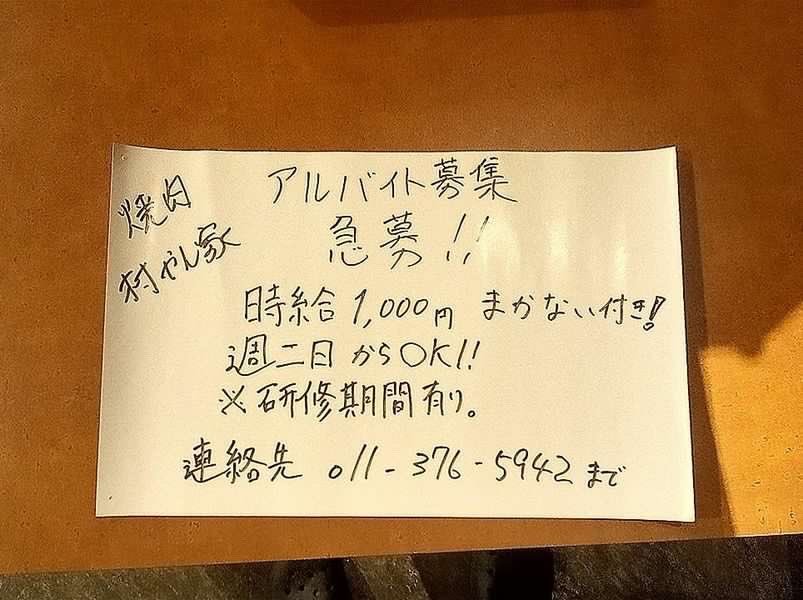 焼肉
村やん家
アルバイト募集
急募!!
時給1,000円 まかない付き!
週二日からOK!!
※研修期間有り。
連絡先 011-376-5942まで